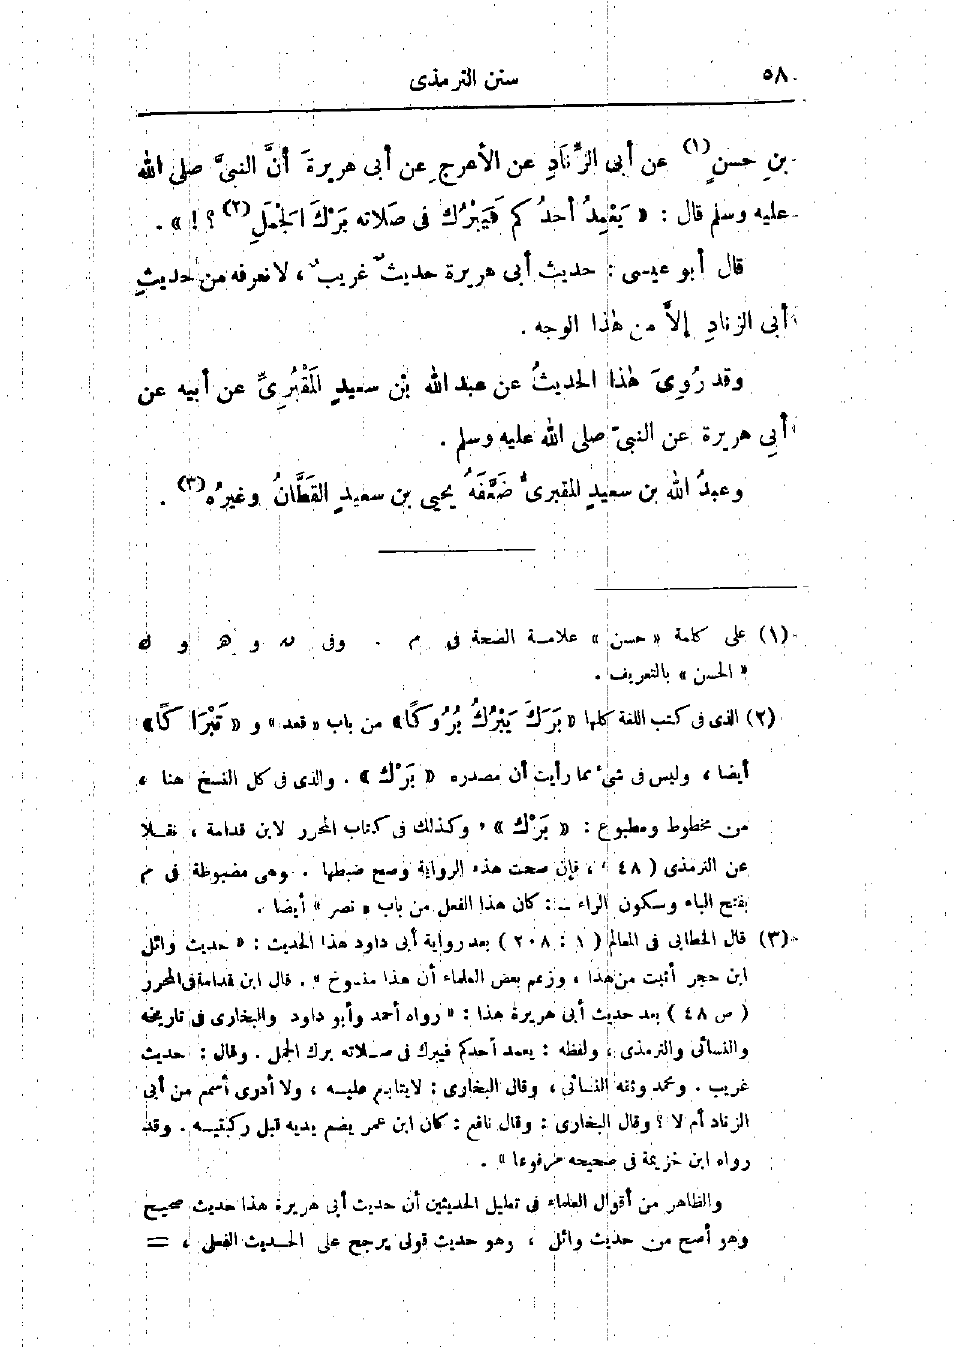 ٥٨
سنن الترمذى
بنِ حسنٍ (١) عن أبى الزِّنَادِ عن الأعرجِ عن أبى هريرةَ أنَّ النبىَّ صلى الله
عليه وسلم قال : « يَعْمِدُ أحدُكم فَيَبْرُك فى صَلاته بَرْكَ الجْمَلِ (٢) ؟ ! » .
قال أبو عيسى : حديث أبى هريرة حديثٌ غريبٌ ، لا نعرفه من حديثِ
أبى الزنادِ إلاَّ من هٰذا الوجه .
وقد رُوِىَ هٰذا الحديثُ عن عبد الله بْن سعيدٍ المَقْبُرِىِّ عن أبيه عن
أبى هريرة عن النبىّ صلى الله عليه وسلم .
وعبدُ الله بن سعيدٍ المقبرىُّ ضَعَّفَهُ يحيى بن سعيدٍ القَطَّانُ وغيرُه (٣) .
(١) على كلمة « حسن » علامـة الصحة فى م . وفى نه و هـ و ك
« الحسن » بالتعريف .
(٢) الذى فى كتب اللغة كلها « بَرَكَ يَبْرُكُ بُرُوكًا » من باب « قعد » و « تَبْرَاكًا »
أيضا ، وليس فى شىء مما رأيت أن مصدره « بَرْك » . والذى فى كل النسخ هنا ،
من مخطوط ومطبوع : « بَرْك » ، وكذلك فى كتاب المحرر لابن قدامة ، نقـلا
عن الترمذى ( ٤٨ ) ، فإن صحت هذه الرواية وصح ضبطها . وهى مضبوطة فى م
بفتح الباء وسكون الراء ـ : كان هذا الفعل من باب « نصر » أيضا .
(٣) قال الخطابى فى المعالم ( ١ : ٢٠٨ ) بعد رواية أبى داود هذا الحديث : « حديث وائل
ابن حجر أثبت من هذا ، وزعم بعض العلماء أن هذا منسوخ » . قال ابن قدامة فى المحرر
( ص ٤٨ ) بعد حديث أبى هريرة هذا : « رواه أحمد وأبو داود والبخارى فى تاريخه
والنسائى والترمذى ، ولفظه : يعمد أحدكم فيبرك فى صـلاته برك الجمل . وقال : حديث
غريب . ومحمد وثقه النسائى ، وقال البخارى : لايتابع عليـه ، ولا أدرى أسمع من أبى
الزناد أم لا ؟ وقال البخارى : وقال نافع : كان ابن عمر يضع يديه قبل ركبتيـه . وقد
رواه ابن خزيمة فى صحيحه مرفوعا » .
والظاهر من أقوال العلماء فى تعليل الحديثين أن حديث أبى هريرة هذا حديث صحيح
وهو أصح من حديث وائل ، وهو حديث قولى يرجح على الحـديث الفعلى ، =